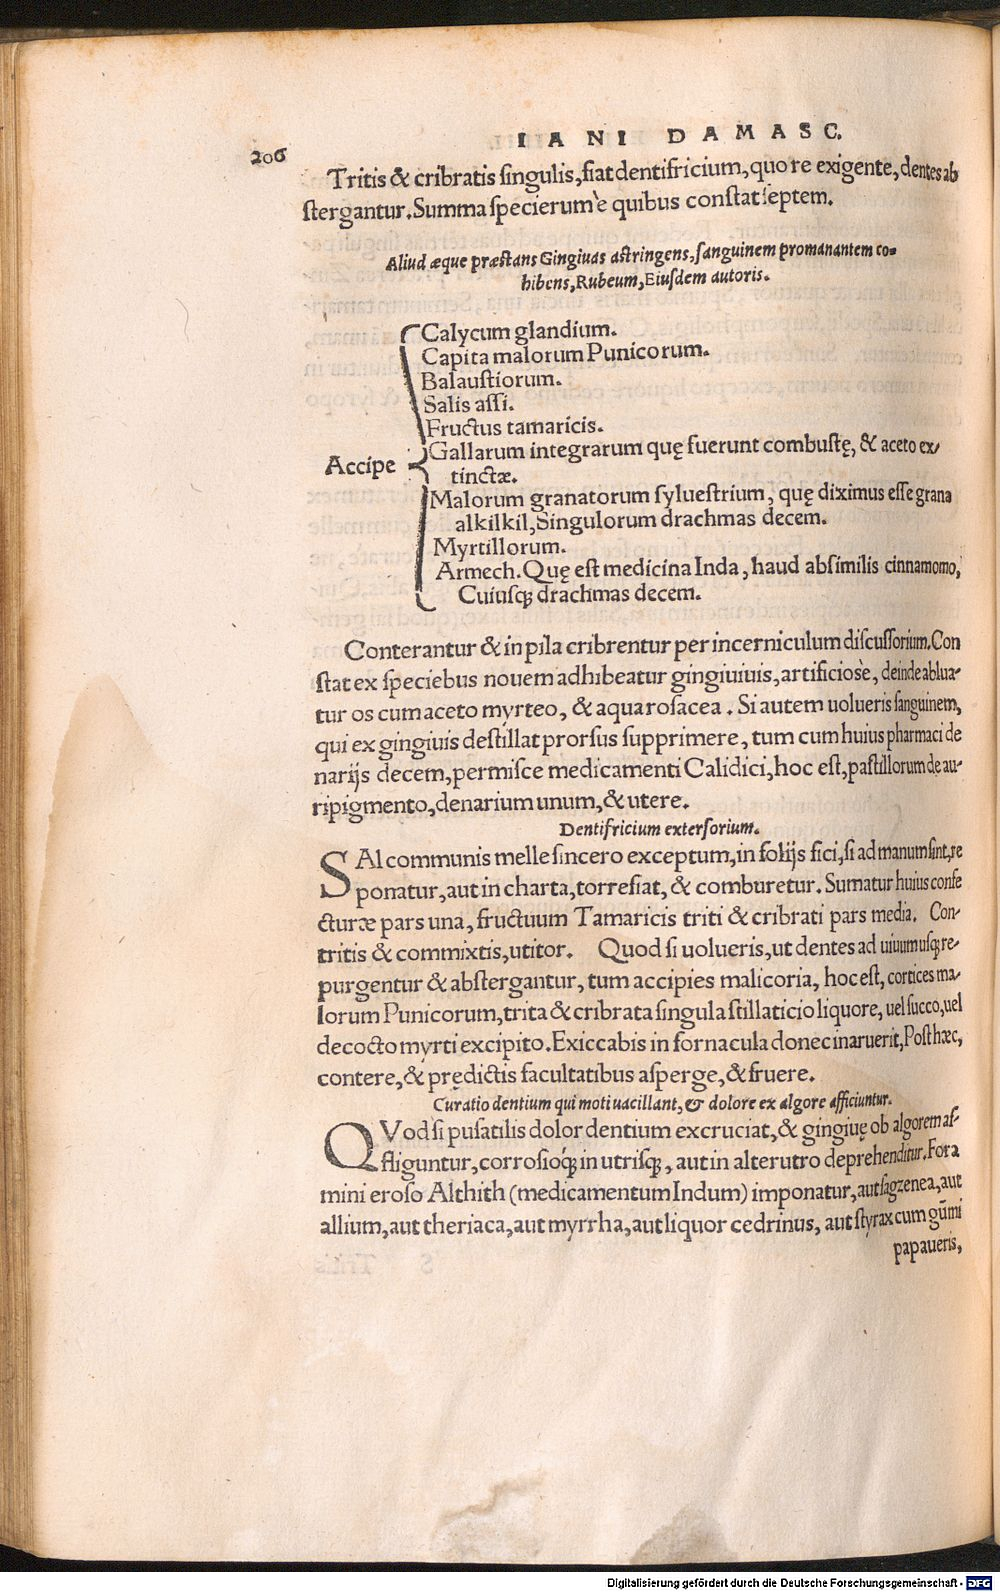 206
IANI DAMASC.
Tritis & cribratis ſingulis, fiat dentifricium, quo re exigente, dentes ab
ſtergantur. Summa ſpecierum è quibus conſtat ſeptem.
Aliud æque præſtans Gingiuas aſtringens, ſanguinem promanantem co-
hibens, Rubeum, Eiuſdem autoris.
Calycum glandium.
Capita malorum Punicorum.
Balauſtiorum.
Salis aſſi.
Fructus tamaricis.
Accipe
Gallarum integrarum quę fuerunt combuſtę, & aceto ex/
tinctæ.
Malorum granatorum ſylueſtrium, quę diximus eſſe grana
alkilkil, Singulorum drachmas decem.
Myrtillorum.
Armech. Quę eſt medicina Inda, haud abſimilis cinnamomo,
Cuiuſq; drachmas decem.
Conterantur & in pila cribrentur per incerniculum diſcuſſorium. Con
ſtat ex ſpeciebus nouem adhibeatur gingiuiuis, artificioſè, deinde ablua-
tur os cum aceto myrteo, & aqua roſacea. Si autem uolueris ſanguinem,
qui ex gingiuis deſtillat prorſus ſupprimere, tum cum huius pharmaci de
narijs decem, permiſce medicamenti Calidici, hoc eſt, paſtillorum de au-
ripigmento, denarium unum, & utere.
Dentifricium exterſorium.
SAl communis melle ſincero exceptum, in folijs fici, ſi ad manum ſint, re
ponatur, aut in charta, torrefiat, & comburetur. Sumatur huius confe
cturæ pars una, fructuum Tamaricis triti & cribrati pars media. Con-
tritis & commixtis, utitor. Quod ſi uolueris, ut dentes ad uiuum uſq; re-
purgentur & abſtergantur, tum accipies malicoria, hoc eſt, cortices ma-
lorum Punicorum, trita & cribrata ſingula ſtillaticio liquore, uel ſucco, uel
decocto myrti excipito. Exiccabis in fornacula donec inaruerit, Poſt hæc,
contere, & prędictis facultatibus aſperge, & fruere.
Curatio dentium qui moti uacillant, & dolore ex algore afficiuntur.
QVod ſi puſatilis dolor dentium excruciat, & gingiuę ob algorem af-
fliguntur, corroſioq́; in utriſq;, aut in alterutro deprehenditur. Fora
mini eroſo Althith (medicamentum Indum) imponatur, aut ſagzenea, aut
allium, aut theriaca, aut myrrha, aut liquor cedrinus, aut ſtyrax cum gūmi
papaueris,
Digitalisierung gefördert durch die Deutsche Forschungsgemeinschaft - DFG